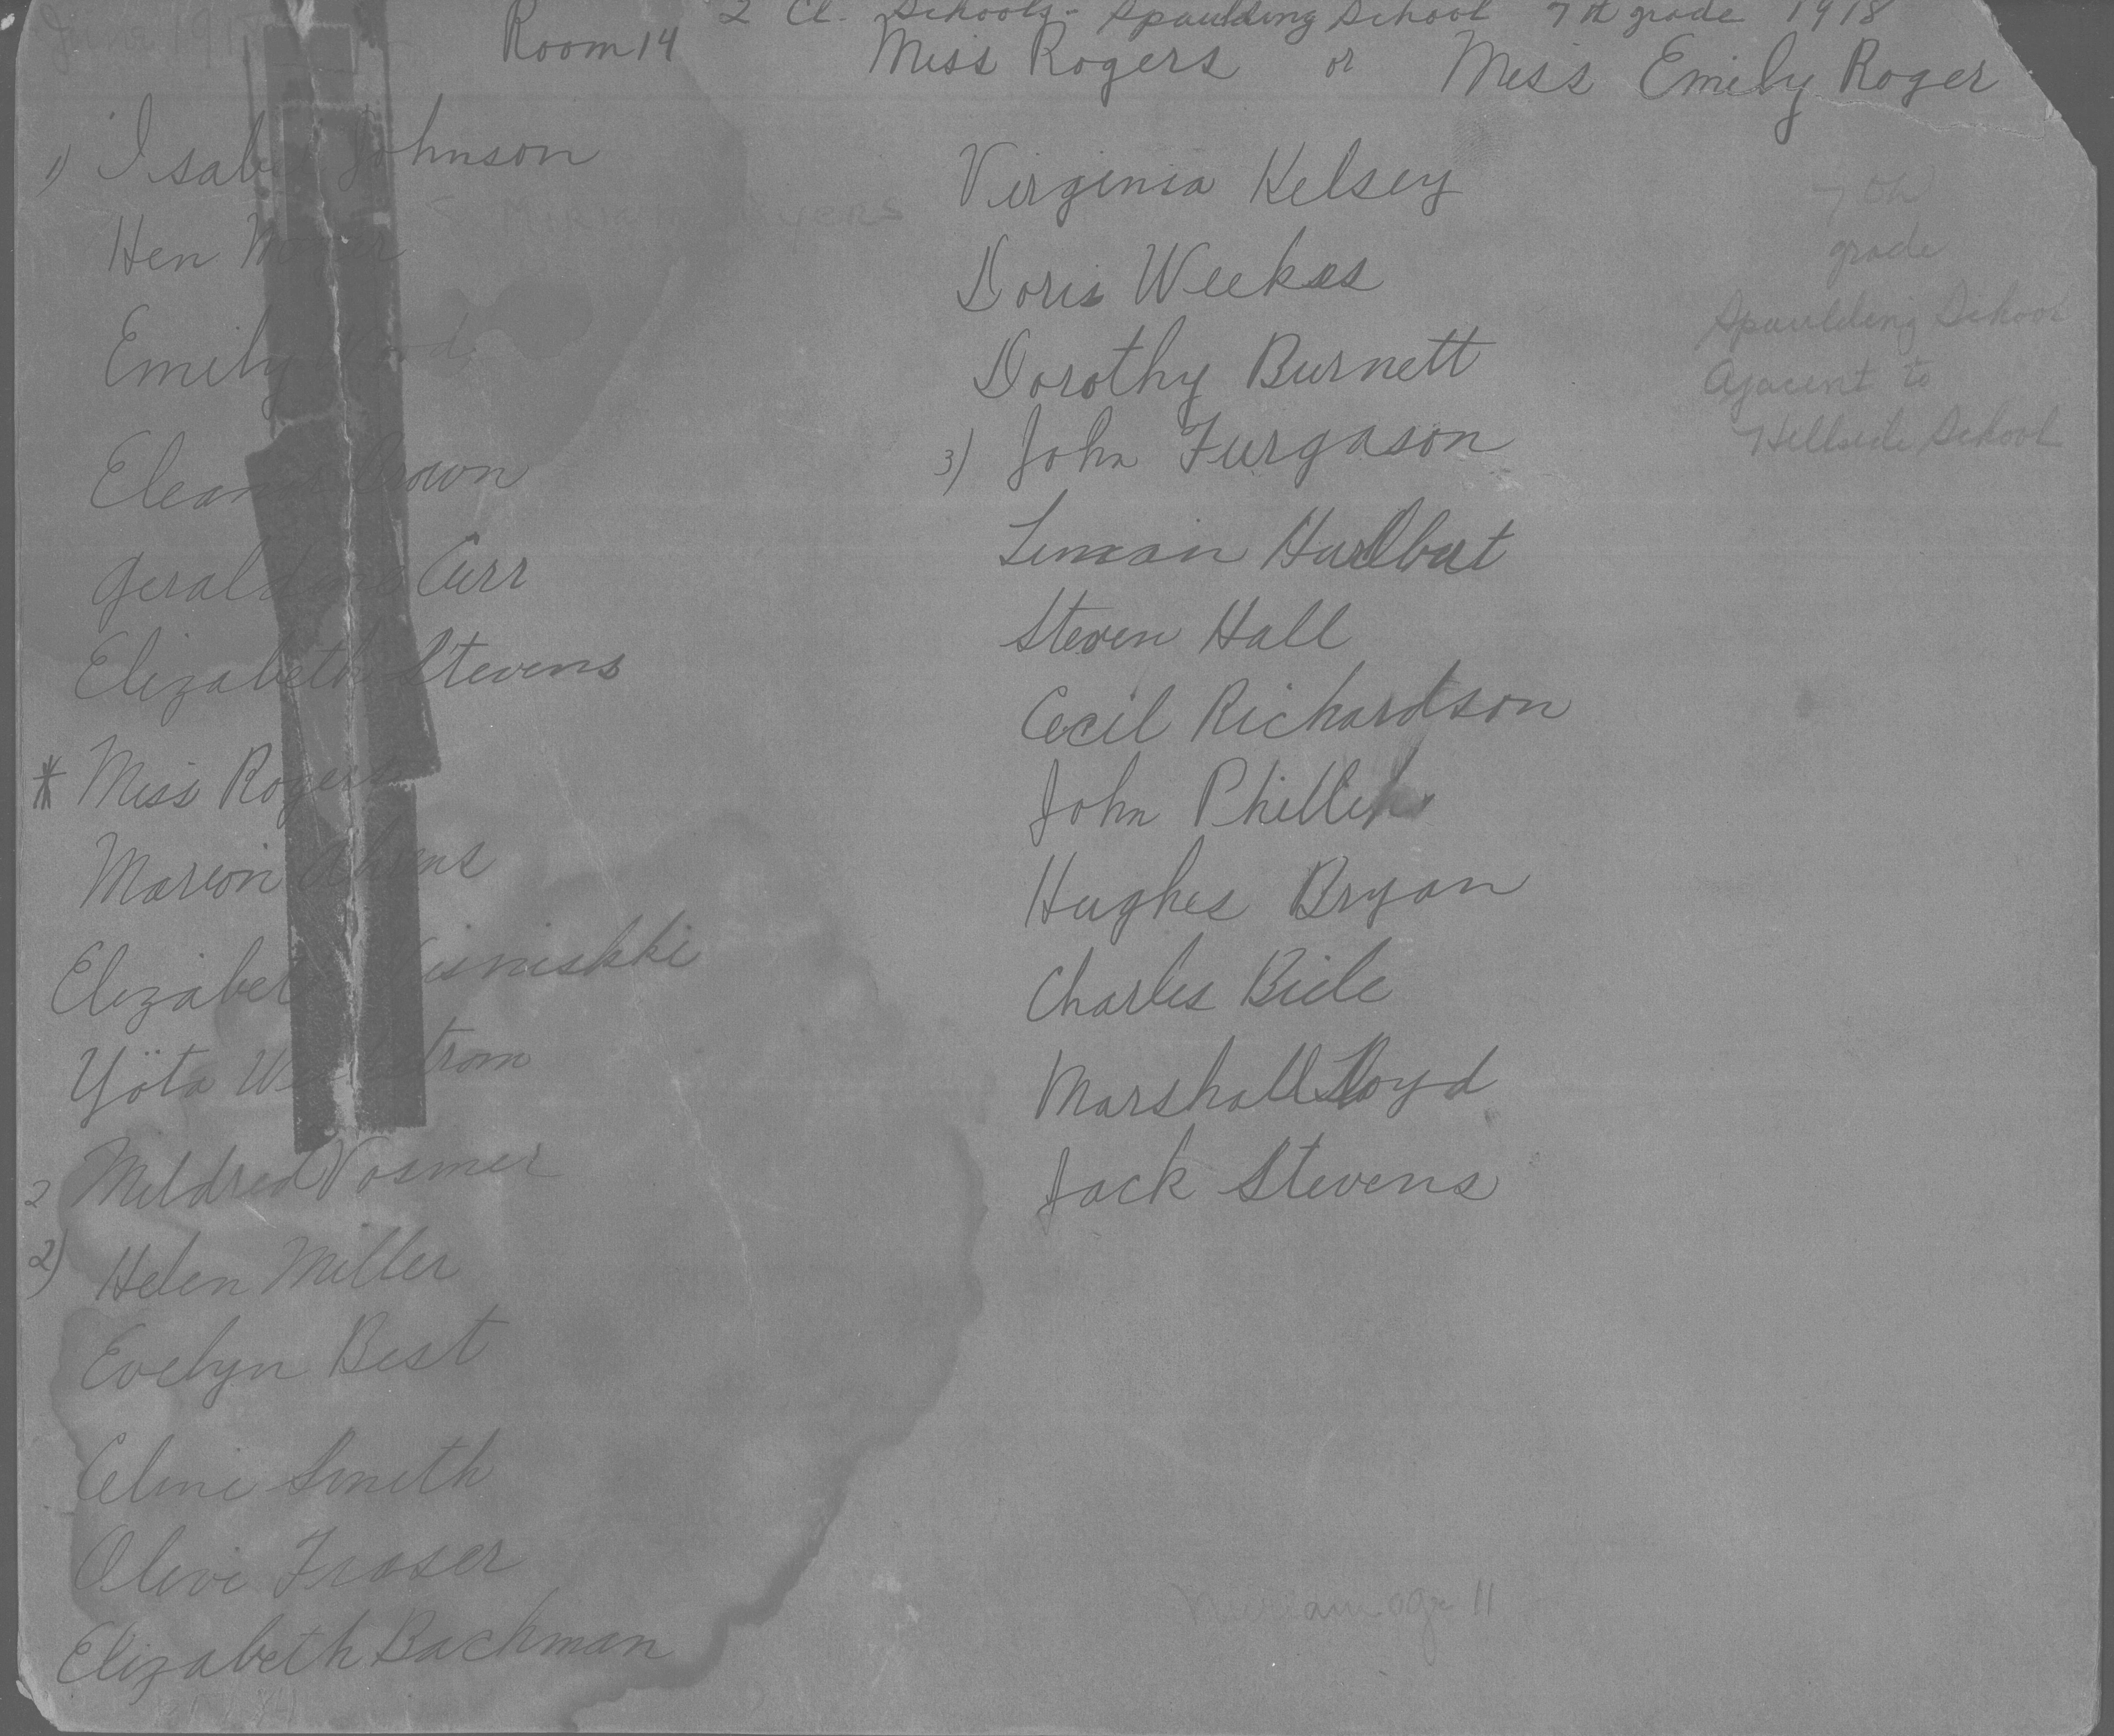 2 Cl. Schools - Spaulding School 7th grade 1918
June
Room 14
Miss Rogers or Miss Emily Roger
1) Isabel Johnson
Hen Meyer
Emily Wood
Eleanor Brown
Geraldine Carr
Elizabeth Stevens
* Miss Rogers
Marion Ahrens
Elizabeth
Yöta
2 Mildred Vosmer
2) Helen Miller
Evelyn Best
Celine Smith
Olive Fraser
Elizabeth Bachman
Virginia Kelsey
Doris Weekes
Dorothy Burnett
3) John Furgason
Leman Hurlbut
Steven Hall
Cecil Richardson
John Phillips
Hughes Bryan
Charles Biele
Marshall Lloyd
Jack Stevens
7th
grade
Spaulding School
Ajacent to
Hillside School
Miriam age 11